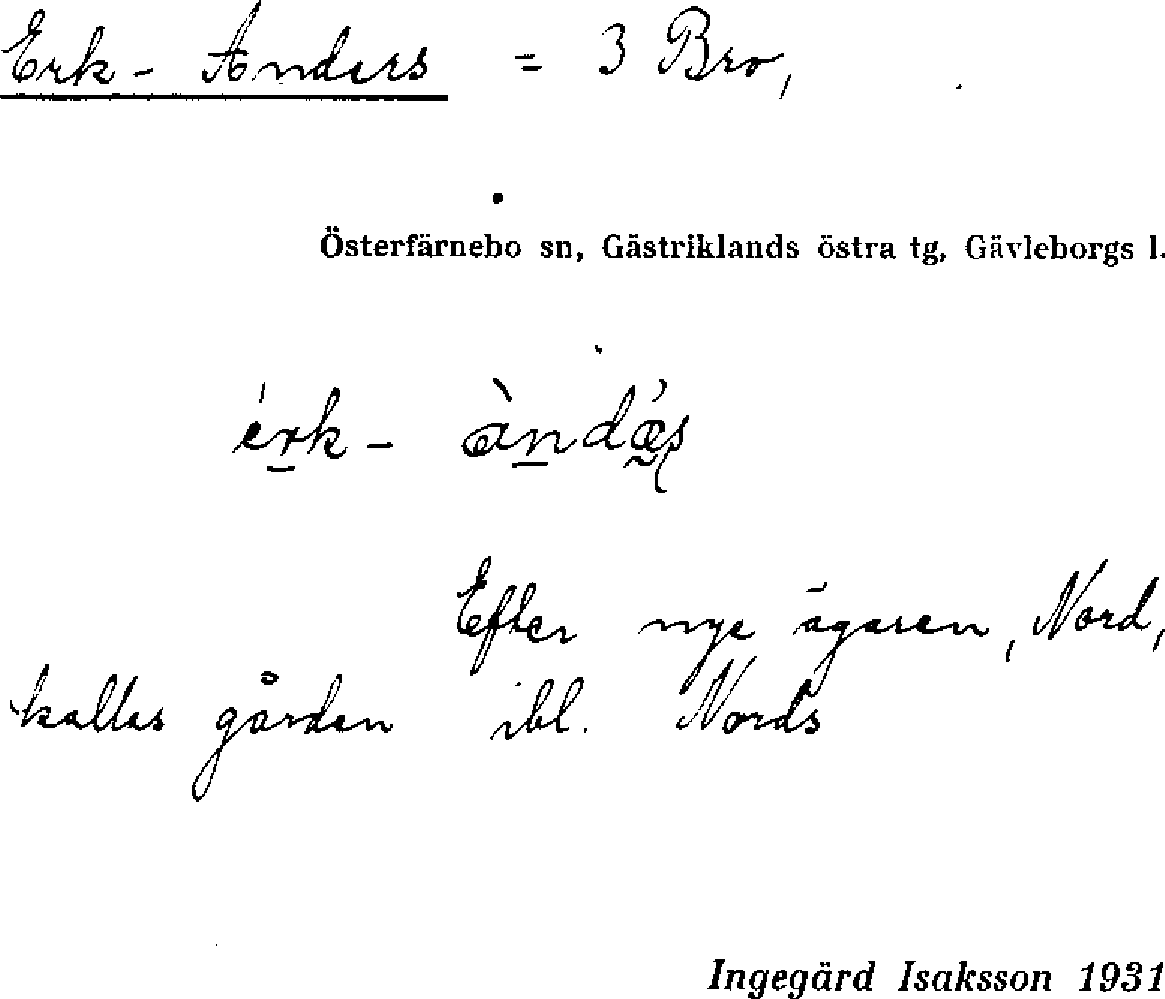 Erk-Anders = 3 Bro,
Österfärnebo sn, Gästriklands östra tg, Gävleborgs l.
érk- àndæ̀s
Efter nye ägaren, Nord,
kallas gården ibl. Nords
Ingegärd Isaksson 1931